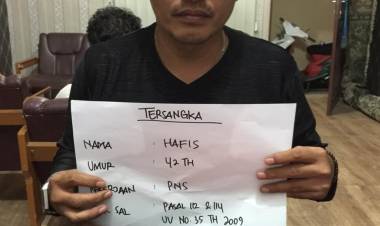 TERSANGKA
NAMA : HAFIS
UMUR : 42 TH
: PNS
SAL PASAL 112 & 114
UU NO. 35 TH 2009